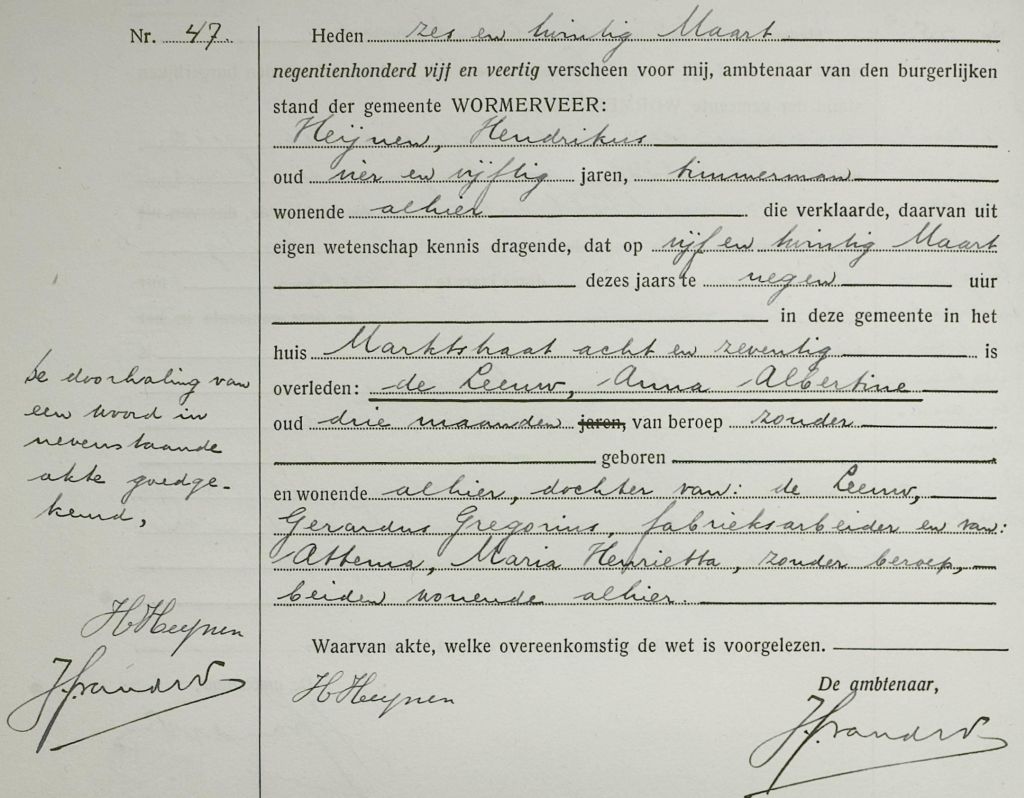 Nr. 47.
Heden zes en twintig Maart
negentienhonderd vijf en veertig verscheen voor mij, ambtenaar van den burgerlijken
stand der gemeente WORMERVEER:
Heijnen, Hendrikus
oud vier en vijftig jaren, timmerman
wonende alhier die verklaarde, daarvan uit
eigen wetenschap kennis dragende, dat op vijf en twintig Maart
dezes jaars te negen uur
in deze gemeente in het
huis Marktstraat acht en zeventig is
overleden: de Leeuw, Anna Albertine
oud drie maanden jaren, van beroep zonder
geboren
en wonende alhier, dochter van: de Leeuw,
Gerardus Gregorius, fabrieksarbeider en van:
Attema, Maria Henrietta, zonder beroep,
beiden wonende alhier.
Waarvan akte, welke overeenkomstig de wet is voorgelezen.
De ambtenaar,
H Heijnen
De doorhaling van
een woord in
nevenstaande
akte goedge-
keurd,
H Heijnen